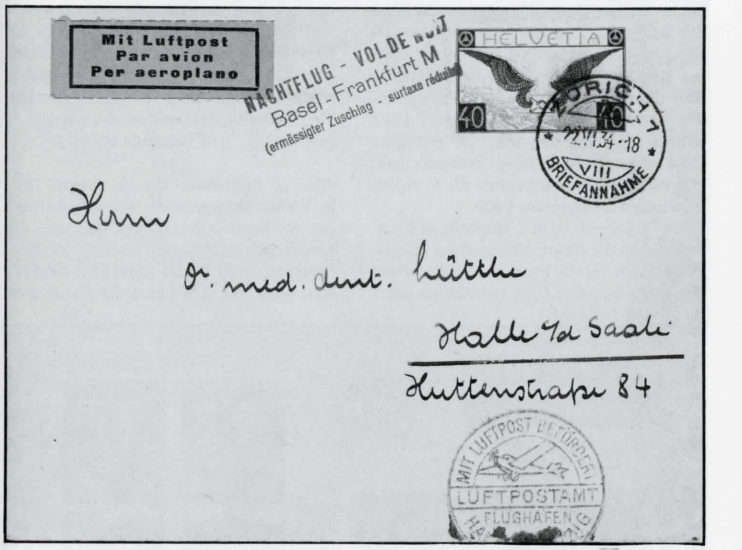 Mit Luftpost
Par avion
Per aeroplano
NACHTFLUG - VOL DE NUIT
Basel-Frankfurt M
(ermässigter Zuschlag - surtaxe réduite)
HELVETIA
40 40
ZÜRICH 1
22.VI.34-18
VIII
BRIEFANNAHME
Herrn
Dr. med. dent. Lüttke
Halle a/d Saale
Huttenstraße 84
MIT LUFTPOST BEFÖRDERT
LUFTPOSTAMT
FLUGHAFEN